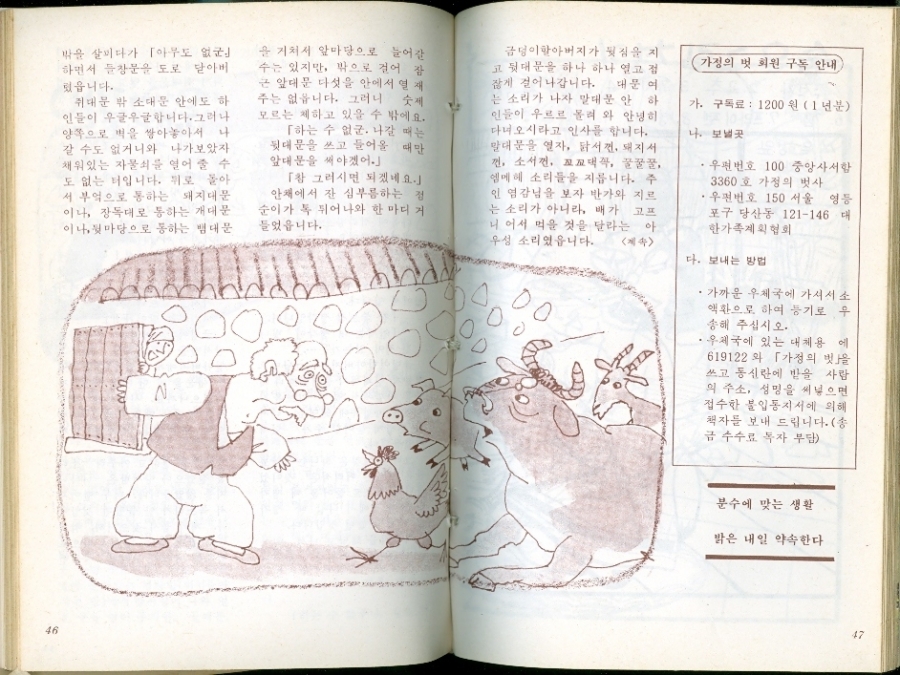 밖을 살피다가 「아무도 없군」
하면서 들창문을 도로 닫아버
렸읍니다.
쥐대문 밖 소대문 안에도 하
인들이 우글우글합니다. 그러나
양쪽으로 벽을 쌓아놓아서 나
갈 수도 없거니와 나가보았자
채워있는 자물쇠를 열어 줄 수
도 없는 터입니다. 뒤로 돌아
서 부엌으로 통하는 돼지대문
이나, 장독대로 통하는 개대문
이나, 뒷마당으로 통하는 뱀대문
을 거쳐서 앞마당으로 들어갈
수는 있지만, 밖으로 걸어 잠
근 앞대문 다섯을 안에서 열 재
주는 없읍니다. 그러니 숫제
모르는 체하고 있을 수 밖에요.
「하는 수 없군. 나갈 때는
뒷대문을 쓰고 들어올 때만
앞대문을 써야겠어.」
「참 그러시면 되겠네요.」
안채에서 잔 심부름하는 점
순이가 톡 튀어나와 한 마디 거
들었읍니다.
금덩이할아버지가 뒷짐을 지
고 뒷대문을 하나 하나 열고 점
잖게 걸어나갑니다. 대문 여
는 소리가 나자 말대문 안 하
인들이 우르르 몰려 와 안녕히
다녀오시라고 인사를 합니다.
말대문을 열자, 닭서껀, 돼지서
껀, 소서껀, 꼬꼬댁꼭, 꿀꿀꿀,
엄메헤 소리들을 지릅니다. 주
인 영감님을 보자 반가와 지르
는 소리가 아니라, 배가 고프
니 어서 먹을 것을 달라는 아
우성 소리였읍니다. 〈계속〉
가정의 벗 회원 구독 안내
가. 구독료 : 1200 원 ( 1 년분)
나. 보낼곳
· 우편번호 100 중앙사서함
3360 호 가정의 벗사
· 우편번호 150 서울 영등
포구 당산동 121-146 대
한가족계획협회
다. 보내는 방법
· 가까운 우체국에 가셔서 소
액환으로 하여 등기로 우
송해 주십시오.
· 우체국에 있는 대체용 에
619122 와 「가정의 벗」을
쓰고 통신란에 받을 사람
의 주소, 성명을 써넣으면
접수한 불입통지서에 의해
책자를 보내 드립니다. (송
금 수수료 독자 부담)
분수에 맞는 생활
밝은 내일 약속한다
46
47